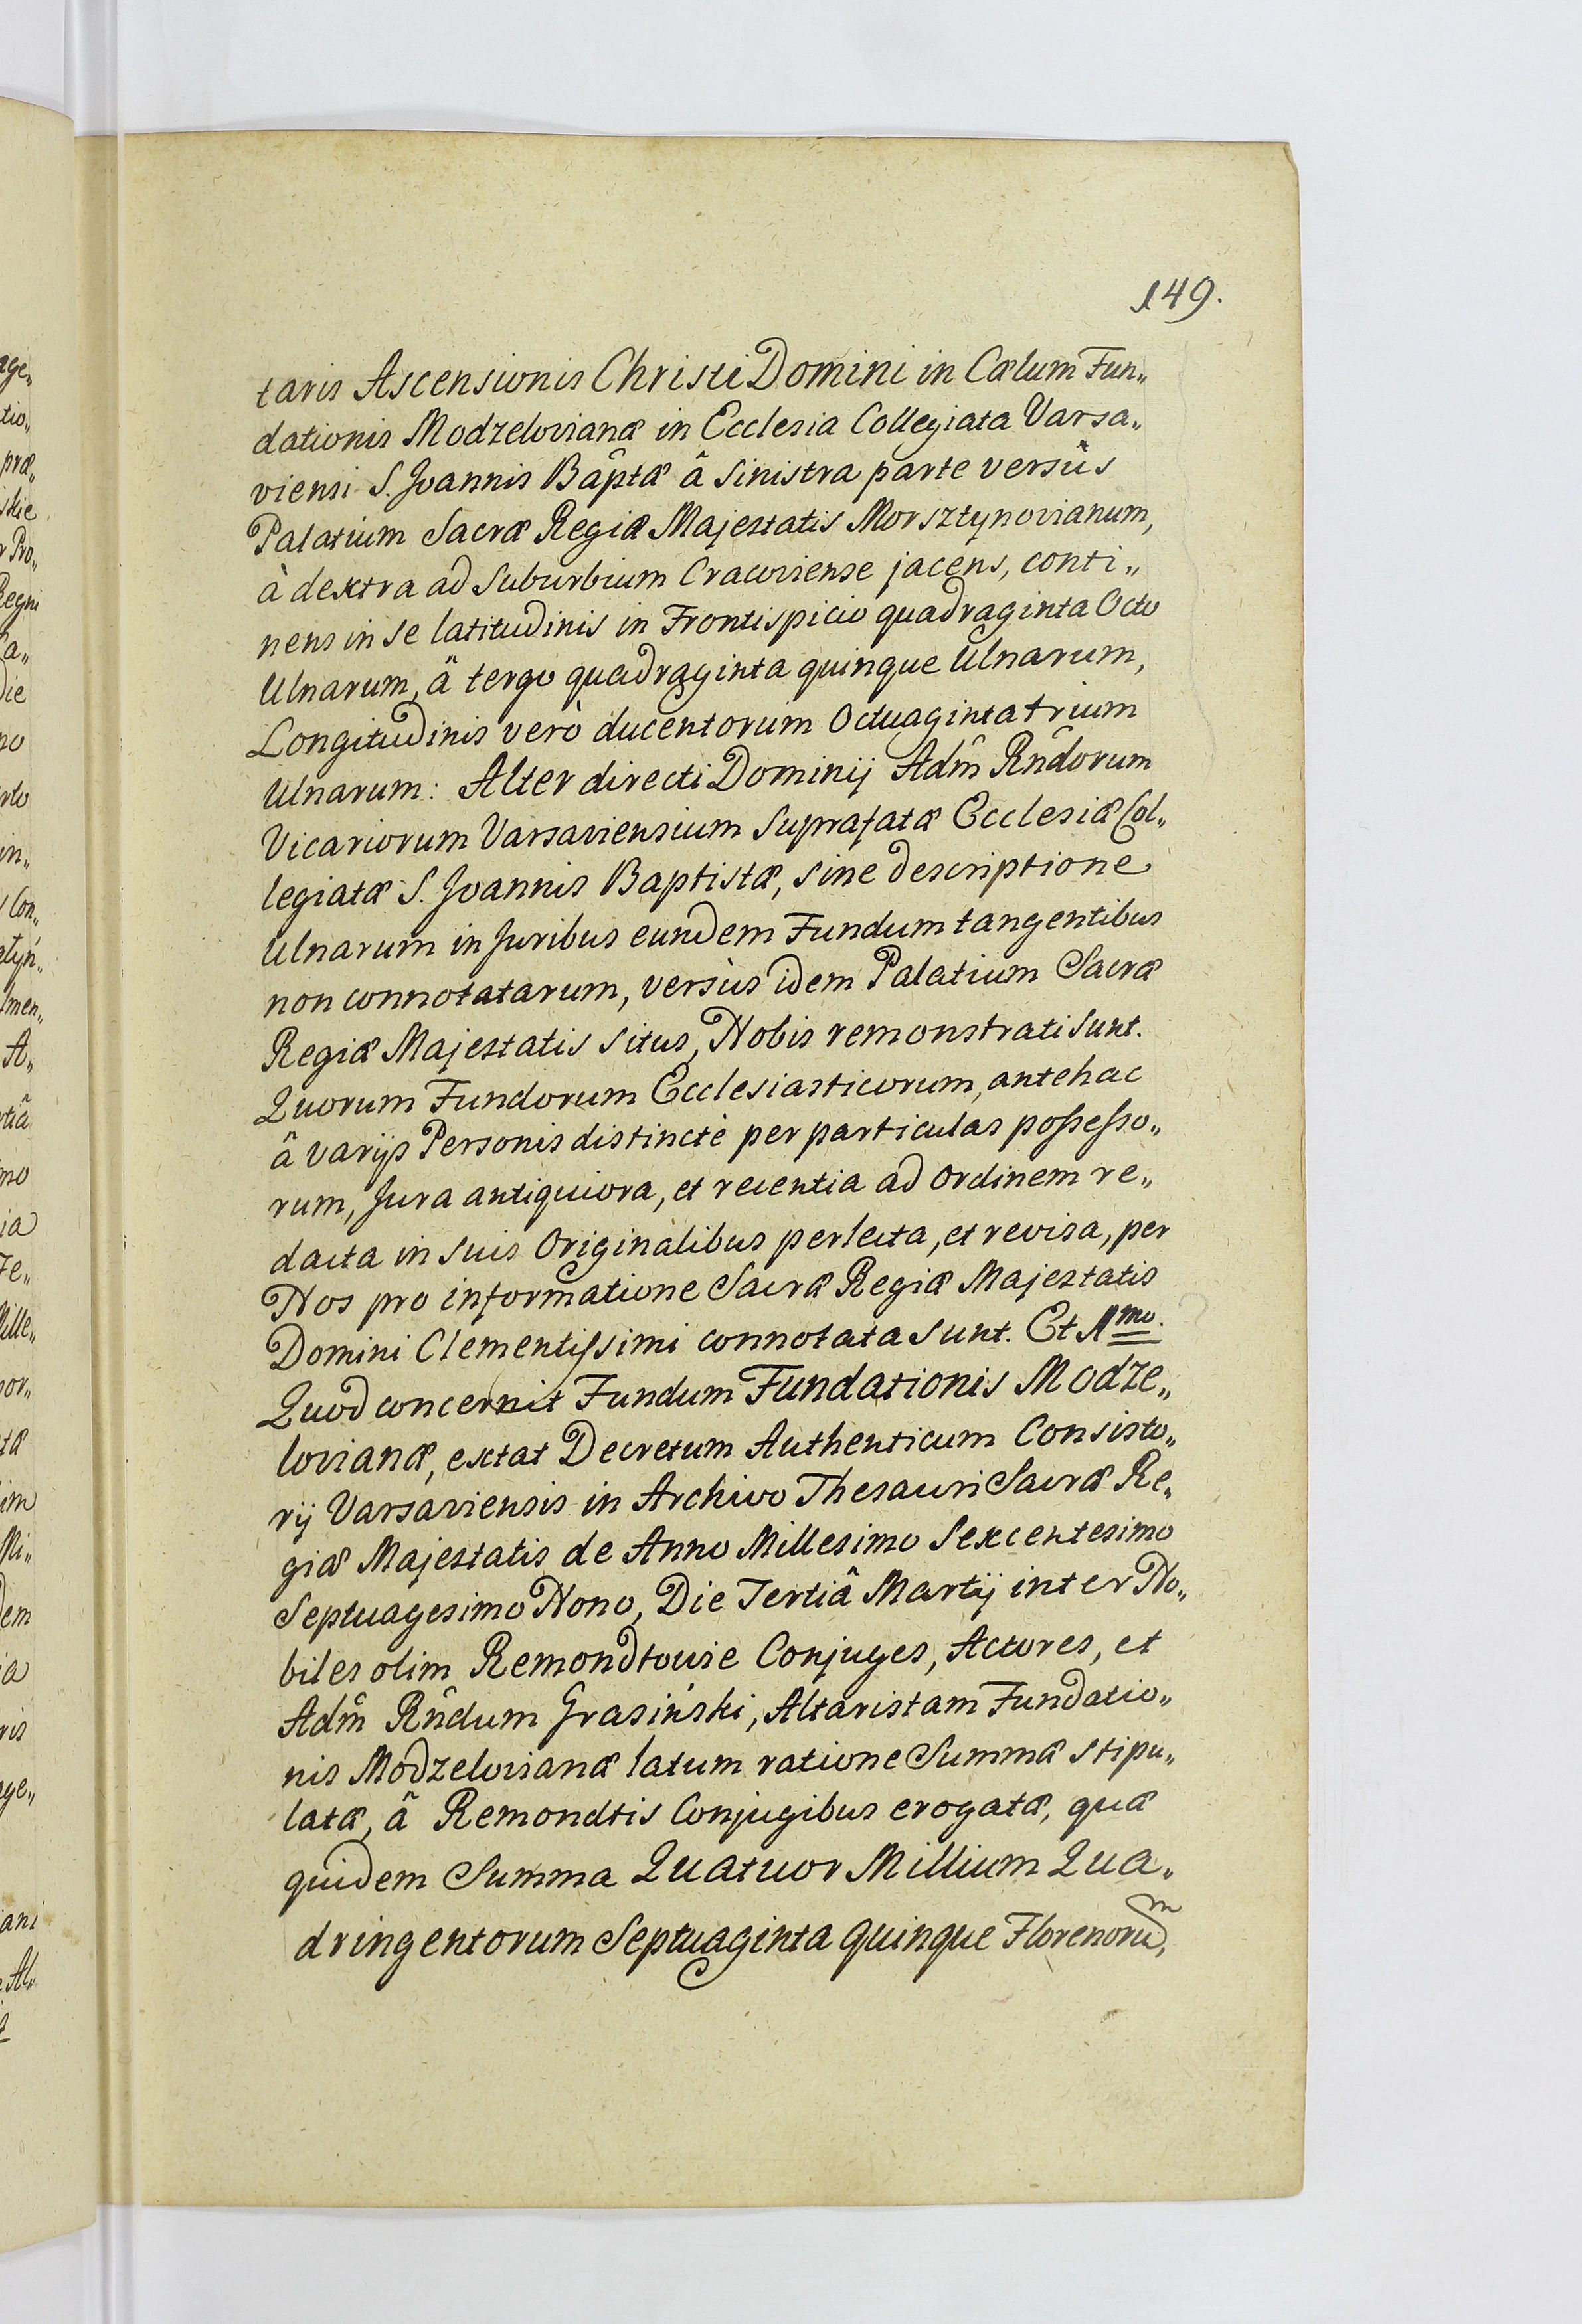 149.
taris Ascensionis Christi Domini in Cælum Fun„
dationis Modzelovianæ in Ecclesia Collegiata Varsa„
viensi S. Joannis Bâptæ â sinistra parte versùs
Palatium Sacræ Regiæ Majestatis Morsztynovianum,
à dextra ad Suburbium Cracoviense jacens, conti„
nens in se latitudinis in Frontispicio quadraginta Octo
Ulnarum, â tergo quadraginta quinque Ulnarum,
Longitudinis verò ducentorum Octuaginta trium
Ulnarum: Alter directi Dominij Adm̂ Rn̂dorum
Vicariorum Varsaviensium Suprafatæ Ecclesiæ Col„
legiatæ S. Joannis Baptistæ, sine descriptione
Ulnarum in Juribus eundem Fundum tangentibus
non connotatarum, versùs idem Palatium Sacræ
Regiæ Majestatis situs, Nobis remonstrati sunt.
Quorum Fundorum Ecclesiasticorum, antehac
â varijs Personis distinctè per particulas possesso„
rum, Jura antiquiora, et recentia ad Ordinem re„
dacta in suis Originalibus perlecta, et revisa, per
Nos pro informatione Sacræ Regiæ Majestatis
Domini Clementissimi connotata sunt. Et 1mo.
Quod concernit Fundum Fundationis Modze„
lovianæ, extat Decretum Authenticum Consisto„
rij Varsaviensis in Archivo Thesauri Sacræ Re„
giæ Majestatis de Anno Millesimo Sexcentesimo
Septuagesimo Nono, Die Tertiâ Martij inter No„
biles olim Remondtowie Conjuges, Actores, et
Adm̂ Rn̂dum Grasiński, Altaristam Fundatio„
nis Modzelovianæ latum ratione Summæ stipu„
latæ, â Remondtis Conjugibus erogatæ, quæ
quidem Summa Quatuor Millium Qua„
dringentorum Septuaginta quinque Florenorum,